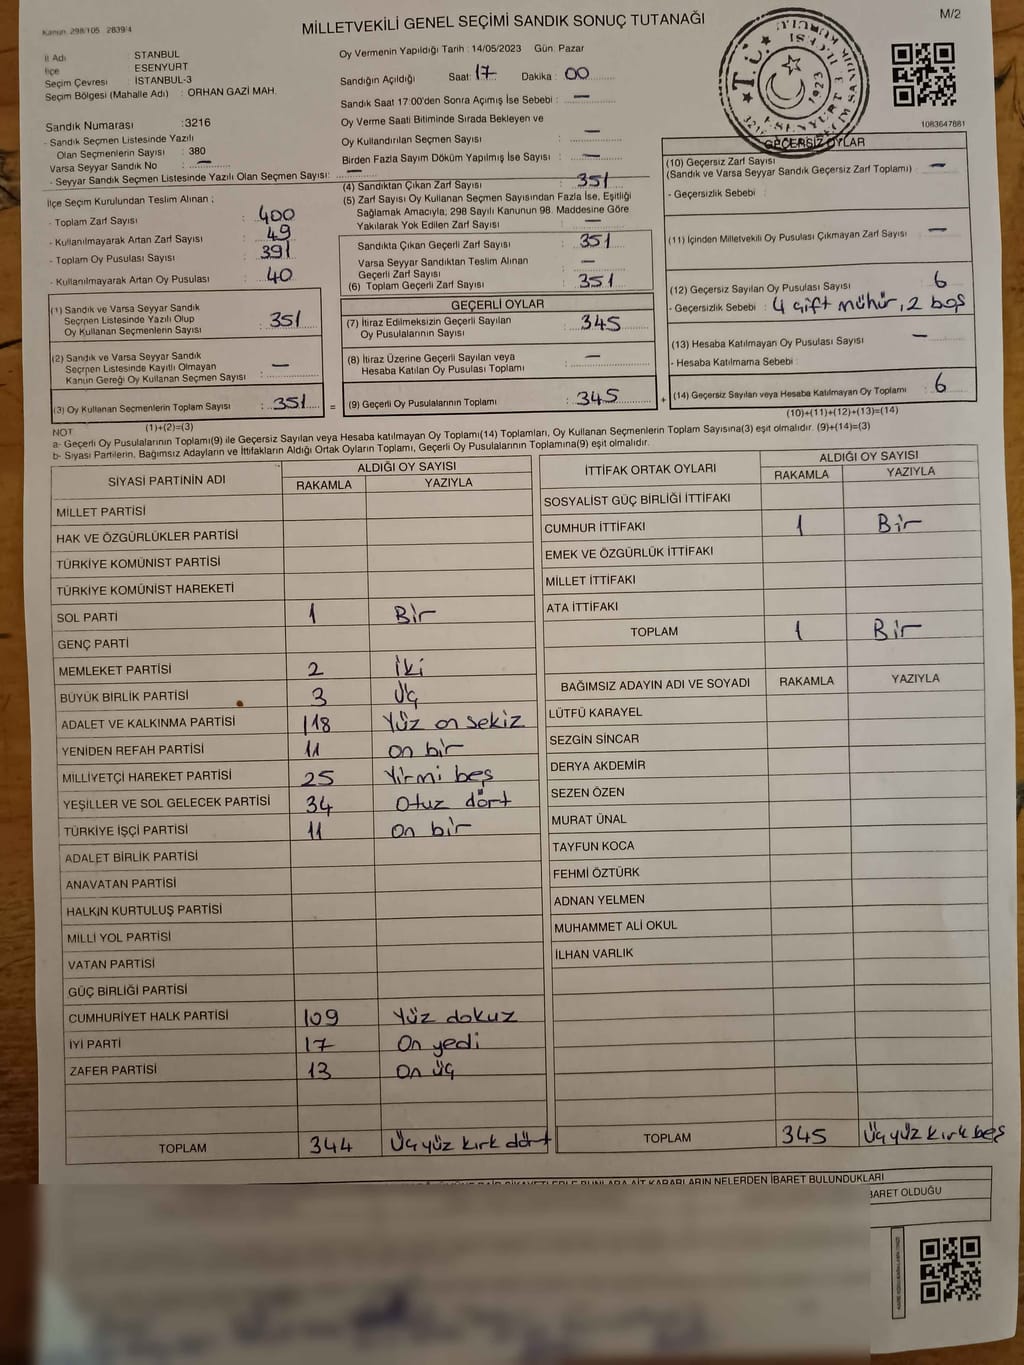 Kanun. 298/105 2839/4
MİLLETVEKİLİ GENEL SEÇİMİ SANDIK SONUÇ TUTANAĞI
M/2
İl Adı : İSTANBUL
İlçe : ESENYURT
Seçim Çevresi : İSTANBUL-3
Seçim Bölgesi (Mahalle Adı) : ORHAN GAZİ MAH.
Sandık Numarası : 3216
- Sandık Seçmen Listesinde Yazılı
Olan Seçmenlerin Sayısı : 380
Varsa Seyyar Sandık No : —
- Seyyar Sandık Seçmen Listesinde Yazılı Olan Seçmen Sayısı: —
Oy Vermenin Yapıldığı Tarih : 14/05/2023 Gün: Pazar
Sandığın Açıldığı Saat: 17 Dakika : 00
Sandık Saat 17:00'den Sonra Açımış İse Sebebi : —
Oy Verme Saati Bitiminde Sırada Bekleyen ve
Oy Kullandırılan Seçmen Sayısı : —
Birden Fazla Sayım Döküm Yapılmış İse Sayısı : —
T.C.
ESENYURT
3216
1923
1083647881
İlçe Seçim Kurulundan Teslim Alınan ;
- Toplam Zarf Sayısı : 400
- Kullanılmayarak Artan Zarf Sayısı : 49
- Toplam Oy Pusulası Sayısı : 391
- Kullanılmayarak Artan Oy Pusulası : 40
(1) Sandık ve Varsa Seyyar Sandık
Seçmen Listesinde Yazılı Olup
Oy Kullanan Seçmenlerin Sayısı : 351
(2) Sandık ve Varsa Seyyar Sandık
Seçmen Listesinde Kayıtlı Olmayan
Kanun Gereği Oy Kullanan Seçmen Sayısı : —
(3) Oy Kullanan Seçmenlerin Toplam Sayısı : 351 =
(1)+(2)=(3)
(4) Sandıktan Çıkan Zarf Sayısı : 351
(5) Zarf Sayısı Oy Kullanan Seçmen Sayısından Fazla İse, Eşitliği
Sağlamak Amacıyla; 298 Sayılı Kanunun 98. Maddesine Göre
Yakılarak Yok Edilen Zarf Sayısı : —
Sandıkta Çıkan Geçerli Zarf Sayısı : 351
Varsa Seyyar Sandıktan Teslim Alınan
Geçerli Zarf Sayısı : —
(6) Toplam Geçerli Zarf Sayısı : 351
GEÇERLİ OYLAR
(7) İtiraz Edilmeksizin Geçerli Sayılan
Oy Pusulalarının Sayısı : 345
(8) İtiraz Üzerine Geçerli Sayılan veya
Hesaba Katılan Oy Pusulası Toplamı : —
(9) Geçerli Oy Pusulalarının Toplamı : 345 +
GEÇERSİZ OYLAR
(10) Geçersiz Zarf Sayısı : —
(Sandık ve Varsa Seyyar Sandık Geçersiz Zarf Toplamı)
- Geçersizlik Sebebi :
(11) İçinden Milletvekili Oy Pusulası Çıkmayan Zarf Sayısı : —
(12) Geçersiz Sayılan Oy Pusulası Sayısı : 6
- Geçersizlik Sebebi : 4 çift mühür, 2 boş
(13) Hesaba Katılmayan Oy Pusulası Sayısı : —
- Hesaba Katılmama Sebebi :
(14) Geçersiz Sayılan veya Hesaba Katılmayan Oy Toplamı : 6
(10)+(11)+(12)+(13)=(14)
NOT
a- Geçerli Oy Pusulalarının Toplamı(9) ile Geçersiz Sayılan veya Hesaba katılmayan Oy Toplamı(14) Toplamları, Oy Kullanan Seçmenlerin Toplam Sayısına(3) eşit olmalıdır. (9)+(14)=(3)
b- Siyasi Partilerin, Bağımsız Adayların ve İttifakların Aldığı Ortak Oyların Toplamı, Geçerli Oy Pusulalarının Toplamına(9) eşit olmalıdır.
SİYASİ PARTİNİN ADI ALDIĞI OY SAYISI
RAKAMLA YAZIYLA
MİLLET PARTİSİ
HAK VE ÖZGÜRLÜKLER PARTİSİ
TÜRKİYE KOMÜNİST PARTİSİ
TÜRKİYE KOMÜNİST HAREKETİ
SOL PARTİ 1 Bir
GENÇ PARTİ
MEMLEKET PARTİSİ 2 iki
BÜYÜK BİRLİK PARTİSİ 3 Üç
ADALET VE KALKINMA PARTİSİ 118 Yüz on sekiz
YENİDEN REFAH PARTİSİ 11 on bir
MİLLİYETÇİ HAREKET PARTİSİ 25 Yirmi beş
YEŞİLLER VE SOL GELECEK PARTİSİ 34 Otuz dört
TÜRKİYE İŞÇİ PARTİSİ 11 On bir
ADALET BİRLİK PARTİSİ
ANAVATAN PARTİSİ
HALKIN KURTULUŞ PARTİSİ
MİLLİ YOL PARTİSİ
VATAN PARTİSİ
GÜÇ BİRLİĞİ PARTİSİ
CUMHURİYET HALK PARTİSİ 109 Yüz dokuz
İYİ PARTİ 17 On yedi
ZAFER PARTİSİ 13 On üç
TOPLAM 344 Üç yüz kırk dört
İTTİFAK ORTAK OYLARI ALDIĞI OY SAYISI
RAKAMLA YAZIYLA
SOSYALİST GÜÇ BİRLİĞİ İTTİFAKI
CUMHUR İTTİFAKI 1 Bir
EMEK VE ÖZGÜRLÜK İTTİFAKI
MİLLET İTTİFAKI
ATA İTTİFAKI
TOPLAM 1 Bir
BAĞIMSIZ ADAYIN ADI VE SOYADI RAKAMLA YAZIYLA
LÜTFÜ KARAYEL
SEZGİN SİNCAR
DERYA AKDEMİR
SEZEN ÖZEN
MURAT ÜNAL
TAYFUN KOCA
FEHMİ ÖZTÜRK
ADNAN YELMEN
MUHAMMET ALİ OKUL
İLHAN VARLIK
TOPLAM 345 Üç yüz kırk beş
KARARLARIN NELERDEN İBARET BULUNDUKLARI
BARET OLDUĞU